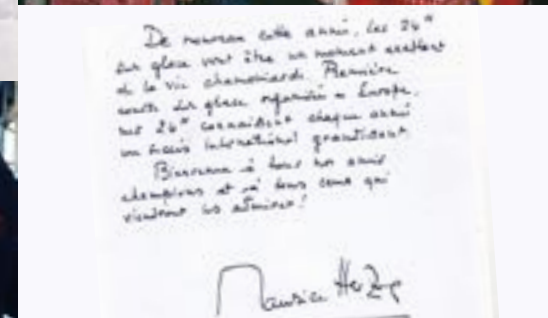 De nouveau cette année, les 24 H
sur glace vont être un moment exaltant
de la vie chamoniarde. Première
course sur glace organisée en Europe,
ces 24 H connaissent chaque année
un succès international grandissant.
Bienvenue à tous nos amis
champions et à tous ceux qui
viendront les admirer !
Maurice Herzog